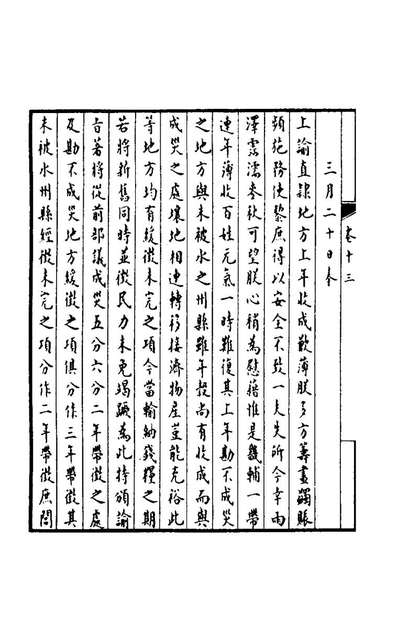 卷十三
三月二十日奉
上諭直隸地方上年收成歉薄朕多方籌畫蠲賑
頻施務使黎庶得以安全不致一夫失所今幸雨
澤霑濡來秋可望朕心稍為慰藉惟是畿輔一帶
連年薄收百姓元氣一時難復其上年勘不成災
之地方與未被水之州縣雖年穀尚有收成而與
成災之處壤地相連轉移接濟物產豈能充裕此
等地方均有緩徵未完之項今當輸納錢糧之期
若將新舊同時並徵民力未免竭蹶為此特頒諭
旨著將從前部議成災五分六分二年帶徵之處
及勘不成災地方緩徵之項俱分作三年帶徵其
未被水州縣經徵未完之項分作二年帶徵庶閭